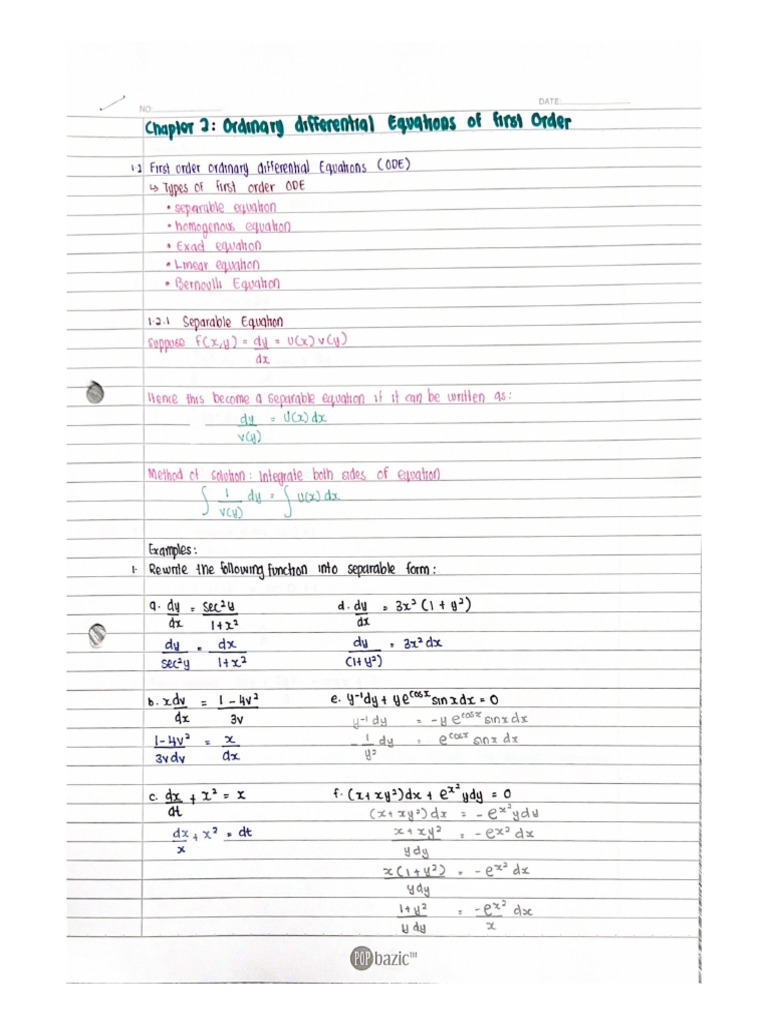 NO:
DATE:
Chapter 2: Ordinary differential Equations of first Order
1.2 First order ordinary differential Equations (ODE)
↳ Types of first order ODE
• separable equation
• homogenous equation
• Exact equation
• Linear equation
• Bernoulli Equation
1.2.1 Separable Equation
Suppose f(x,y) = dy/dx = U(x) v(y)
Hence this become a separable equation if it can be written as:
dy/v(y) = U(x) dx
Method of solution: Integrate both sides of equation
∫ 1/v(y) dy = ∫ U(x) dx
Examples:
1. Rewrite the following function into separable form:
a. dy/dx = sec²y/1+x²
dy/sec²y = dx/1+x²
b. xdv/dx = 1-4v²/3v
1-4v²/3vdv = x/dx
c. dx/dt + x² = x
dx/x + x² = dt
d. dy/dx = 3x²(1+y²)
dy/(1+y²) = 3x²dx
e. y⁻¹dy + ye^cosx sinxdx = 0
y⁻¹dy = -ye^cosx sinxdx
-1/y² dy = e^cosx sinx dx
f. (x+xy²)dx + e^x² ydy = 0
(x+xy²)dx = -e^x² ydy
x+xy²/ydy = -e^x² dx
x(1+y²)/ydy = -e^x² dx
1+y²/ydy = -e^x²/x dx
POPbazic™